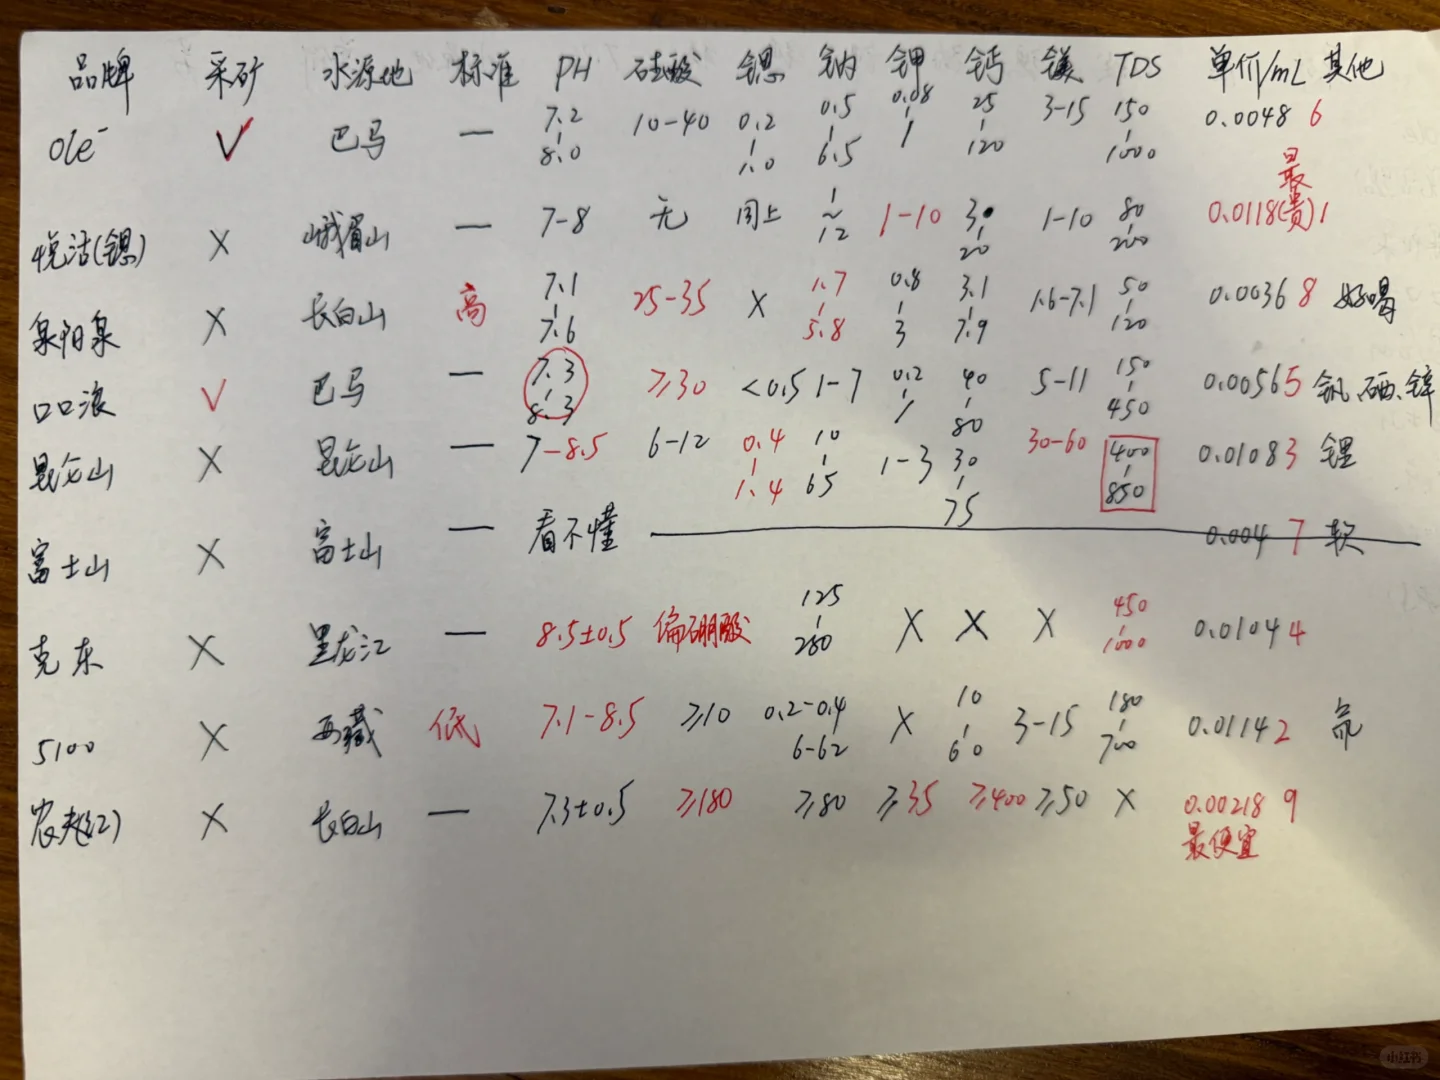 品牌 采矿 水源地 标准 PH 硅酸 锶 钠 钾 钙 镁 TDS 单价/mL 其他
Ole' √ 巴马 — 7.2-8.0 10-40 0.2-1.0 0.5-6.5 0.08-1 25-120 3-15 150-1000 0.0048 6
悦活(锶) × 峨眉山 — 7-8 无 同上 1~12 1-10 3-20 1-10 80-200 0.0118(最贵)1
泉阳泉 × 长白山 高 7.1-7.6 25-35 × 1.7-5.8 0.8-3 3.1-7.9 1.6-7.1 50-120 0.0036 8 好喝
口口浪 √ 巴马 — 7.3-8.3 ≥30 <0.5 1-7 0.2-1 40-80 5-11 150-450 0.0056 5 钒、硒、锌
昆仑山 × 昆仑山 — 7-8.5 6-12 0.4-1.4 10-65 1-3 30-75 30-60 400-850 0.0108 3 锂
富士山 × 富士山 — 看不懂 0.004 7 软
克东 × 黑龙江 — 8.5±0.5 偏硼酸 125-280 × × × 450-1000 0.0104 4
5100 × 西藏 低 7.1-8.5 ≥10 0.2-0.4 6-62 × 10-60 3-15 180-700 0.0114 2
农夫(红) × 长白山 — 7.3±0.5 ≥180 ≥80 ≥35 ≥400 ≥50 × 0.00218 9
最便宜